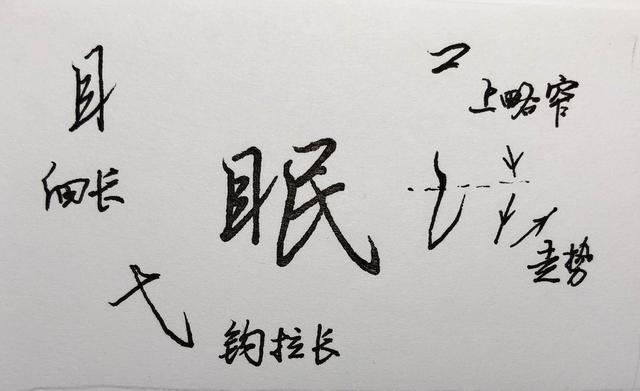 目
上略窄
细长
眠
走势
钩拉长